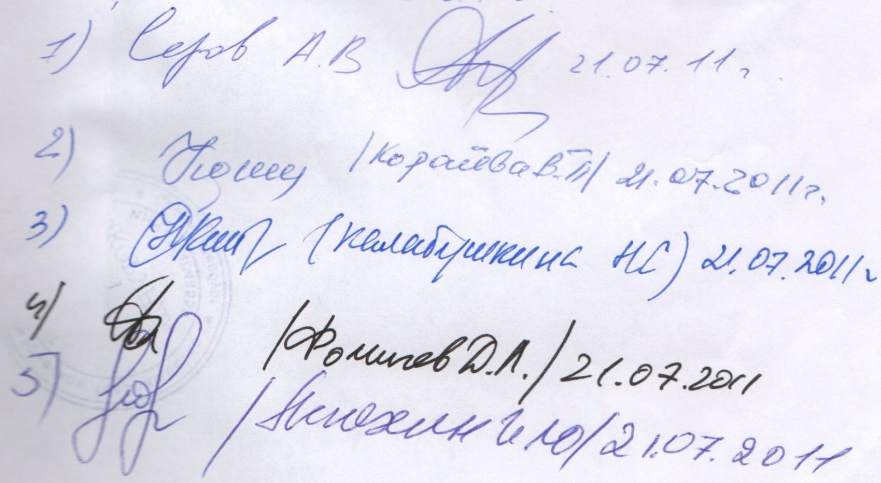 1) Серов А.В 21.07.11г.
2) /Кораёва В.П/ 21.07.2011г.
3) (Калабушкина НС) 21.07.2011г
4/ /Фомичев Д.А./ 21.07.2011
5) /Анохин И Ю/ 21.07.2011